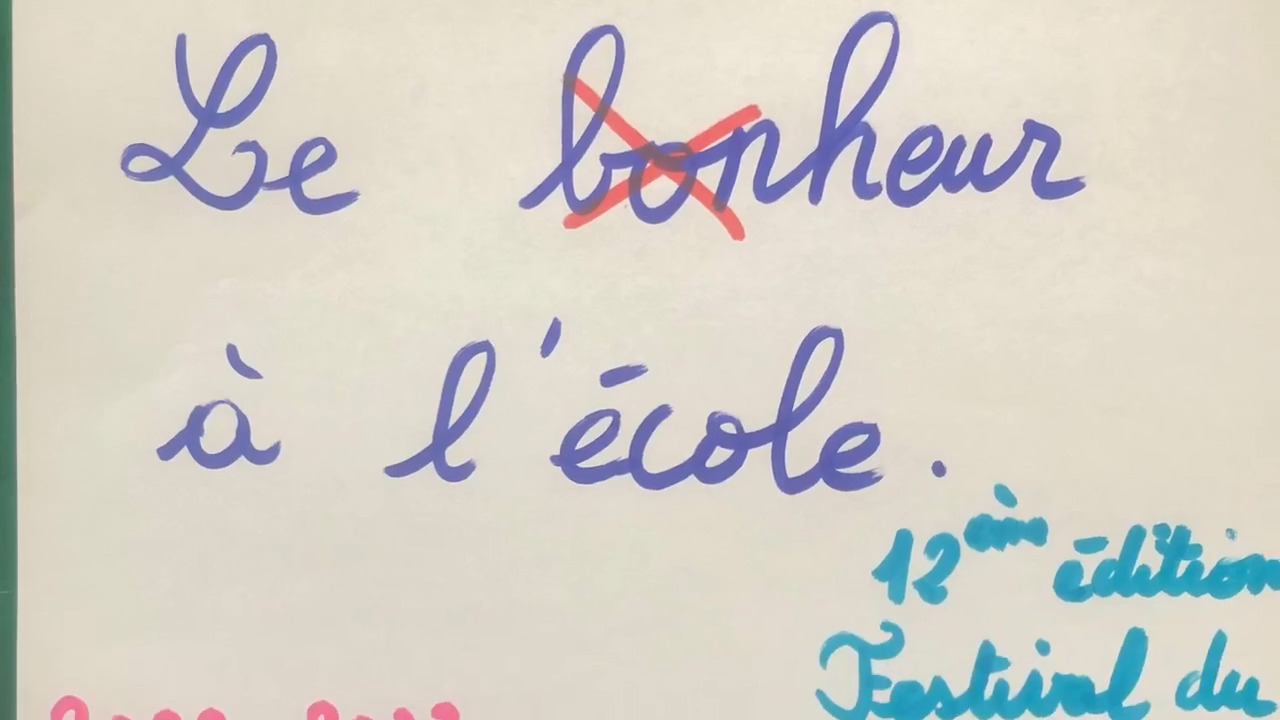 Le bonheur
à l'école.
12ème édition
Festival du